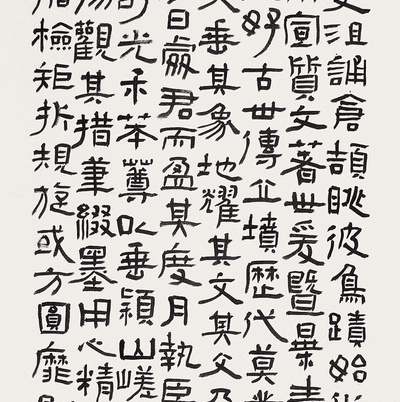 史沮誦倉頡眺彼鳥蹟始作
宣質文著世爰暨暴秦
好古世傳丘墳歷代莫
天垂其象地耀其文其文乃
日處君而盈其度月執臣
舒光禾苯䔿以垂穎山嵯
揚觀其措筆綴墨用心精
循檢矩折規旋或方圓靡